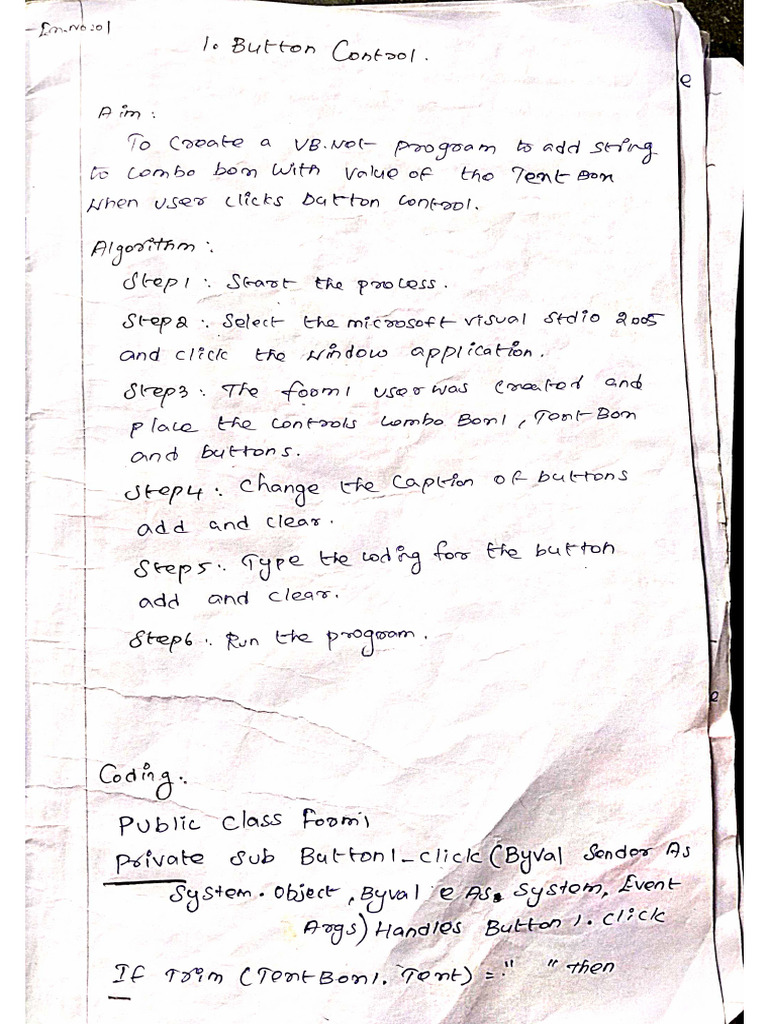 Ex.No:01
1. Button Control.
e
Aim:
To Create a VB.Net program to add string
to Combo box With Value of the Text Box
When user clicks button control.
Algorithm:
Step1: Start the process.
Step2: Select the microsoft visual stdio 2005
and click the window application.
Step3: The form1 user was created and
place the controls combo Box1, Text Box
and buttons.
Step4: Change the Caption of buttons
add and clear.
Step5: Type the coding for the button
add and clear.
Step6: Run the program.
e
Coding:
Public Class Form1
Private Sub Button1_click(ByVal Sender As
System.Object, Byval e As. System, Event
Args) Handles Button1.click
If Trim (TextBox1.Text) = " " then